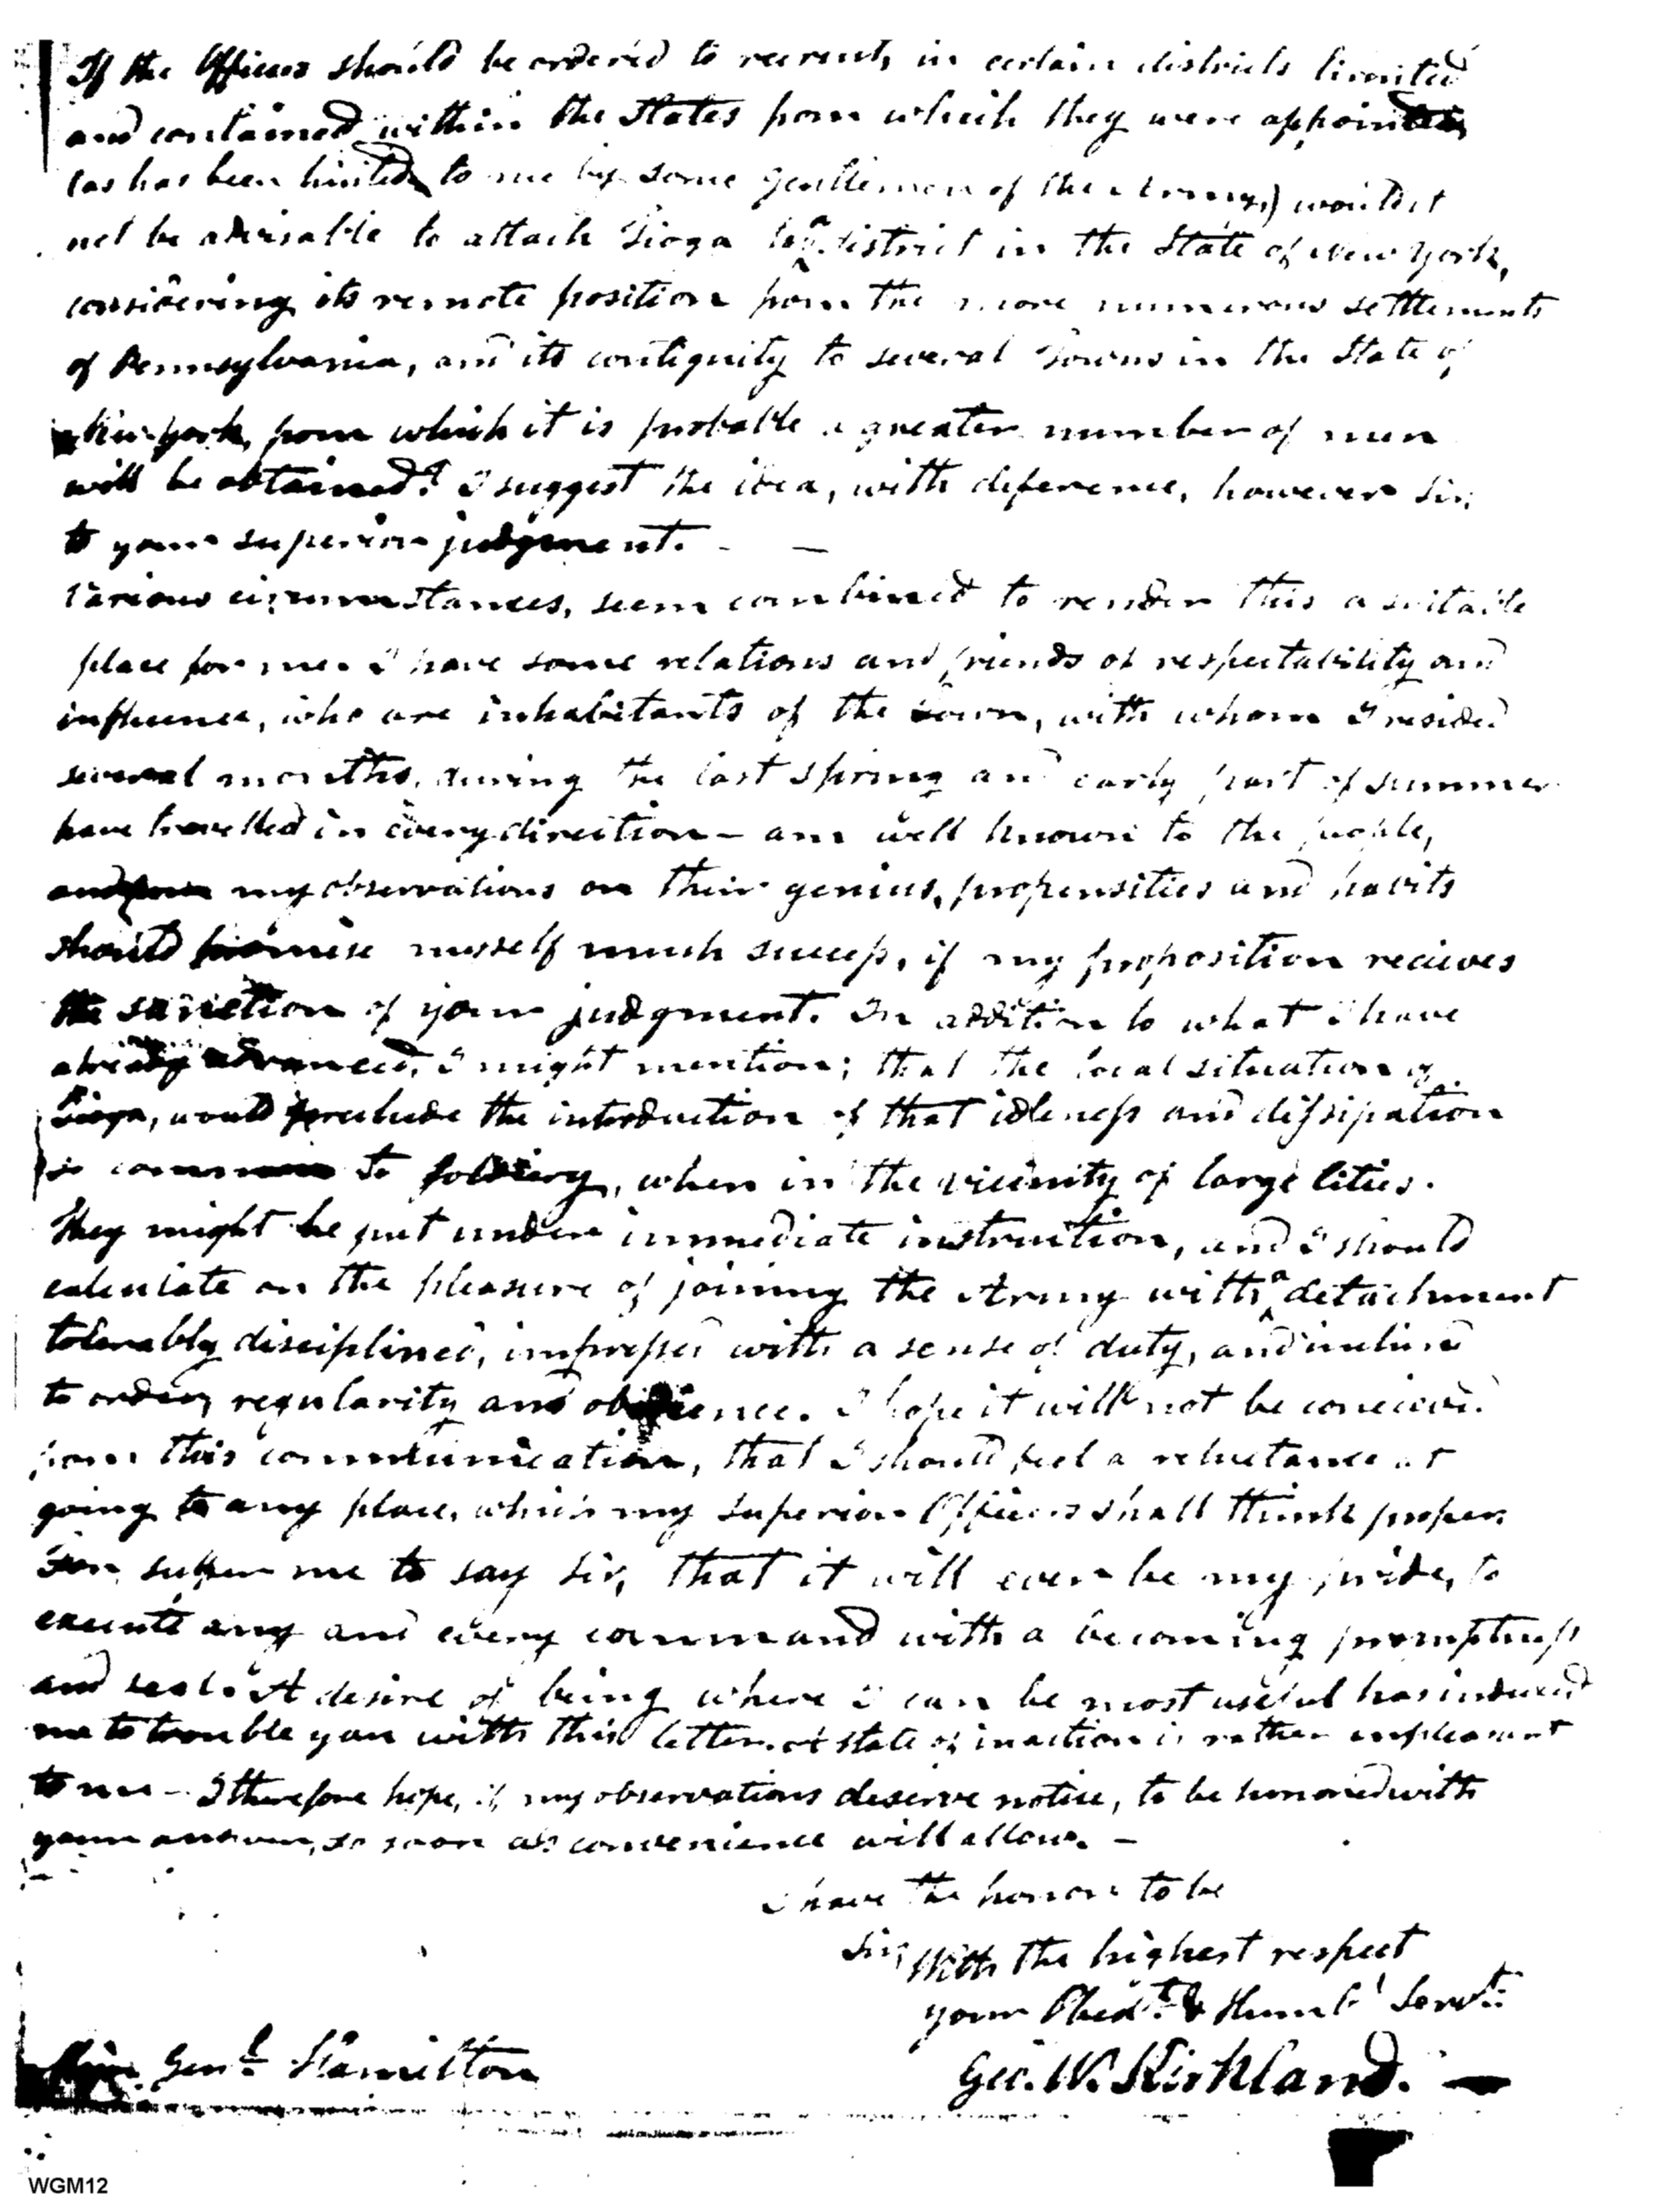 If the Officers should be ordered to recruit, in certain districts limited
and contained within the States from which they were appointed
(as has been hinted to me by some gentlemen of the Army,) would it
not be advisable to attach Tioga to a district in the State of New York,
considering its remote position from the more numerous settlements
of Pennsylvania, and its contiguity to several Towns in the State of
New-York, from which it is probable a greater number of men
will be obtained? I suggest the idea, with deference, however Sir,
to your superior judgement. - —
Various circumstances, seem combined to render this a suitable
place for me. I have some relations and friends of respectability and
influence, who are inhabitants of the town, with whom I resided
several months, during the last spring and early part of summer
have travelled in every direction - am well known to the people,
my observations on their genius, propensities and habits
should promise myself much success, if my proposition recieves
the sanction of your judgment. In addition to what I have
already advanced, I might mention; that the local situation of
Tioga, would preclude the introduction of that idleness and dissipation
so common to soldiery, when in the vicinity of large Cities.
They might be put under immediate instruction, and I should
calculate on the pleasure of joining the Army with a detachment
tolerably disciplined, impressed with a sense of duty, and inclined
to order, regularity and obedience. I hope it will not be concieved
from this communication, that I should feel a reluctance at
going to any place, which my superior Officers shall think proper
For suffer me to say Sir, that it will ever be my pride, to
execute any and every command with a becoming promptness
and zeal. A desire of being where I can be most useful has induced
me to trouble you with this letter. A state of inaction is rather unpleasant
to me - I therefore hope, if my observations deserve notice, to be honored with
your answer, so soon as convenience will allow. -
I have the honor to be
Sir, With the highest respect
your Obedt. & Humbl Servt.
Geo. W. Kirkland. —
Genl. Hamilton
WGM12